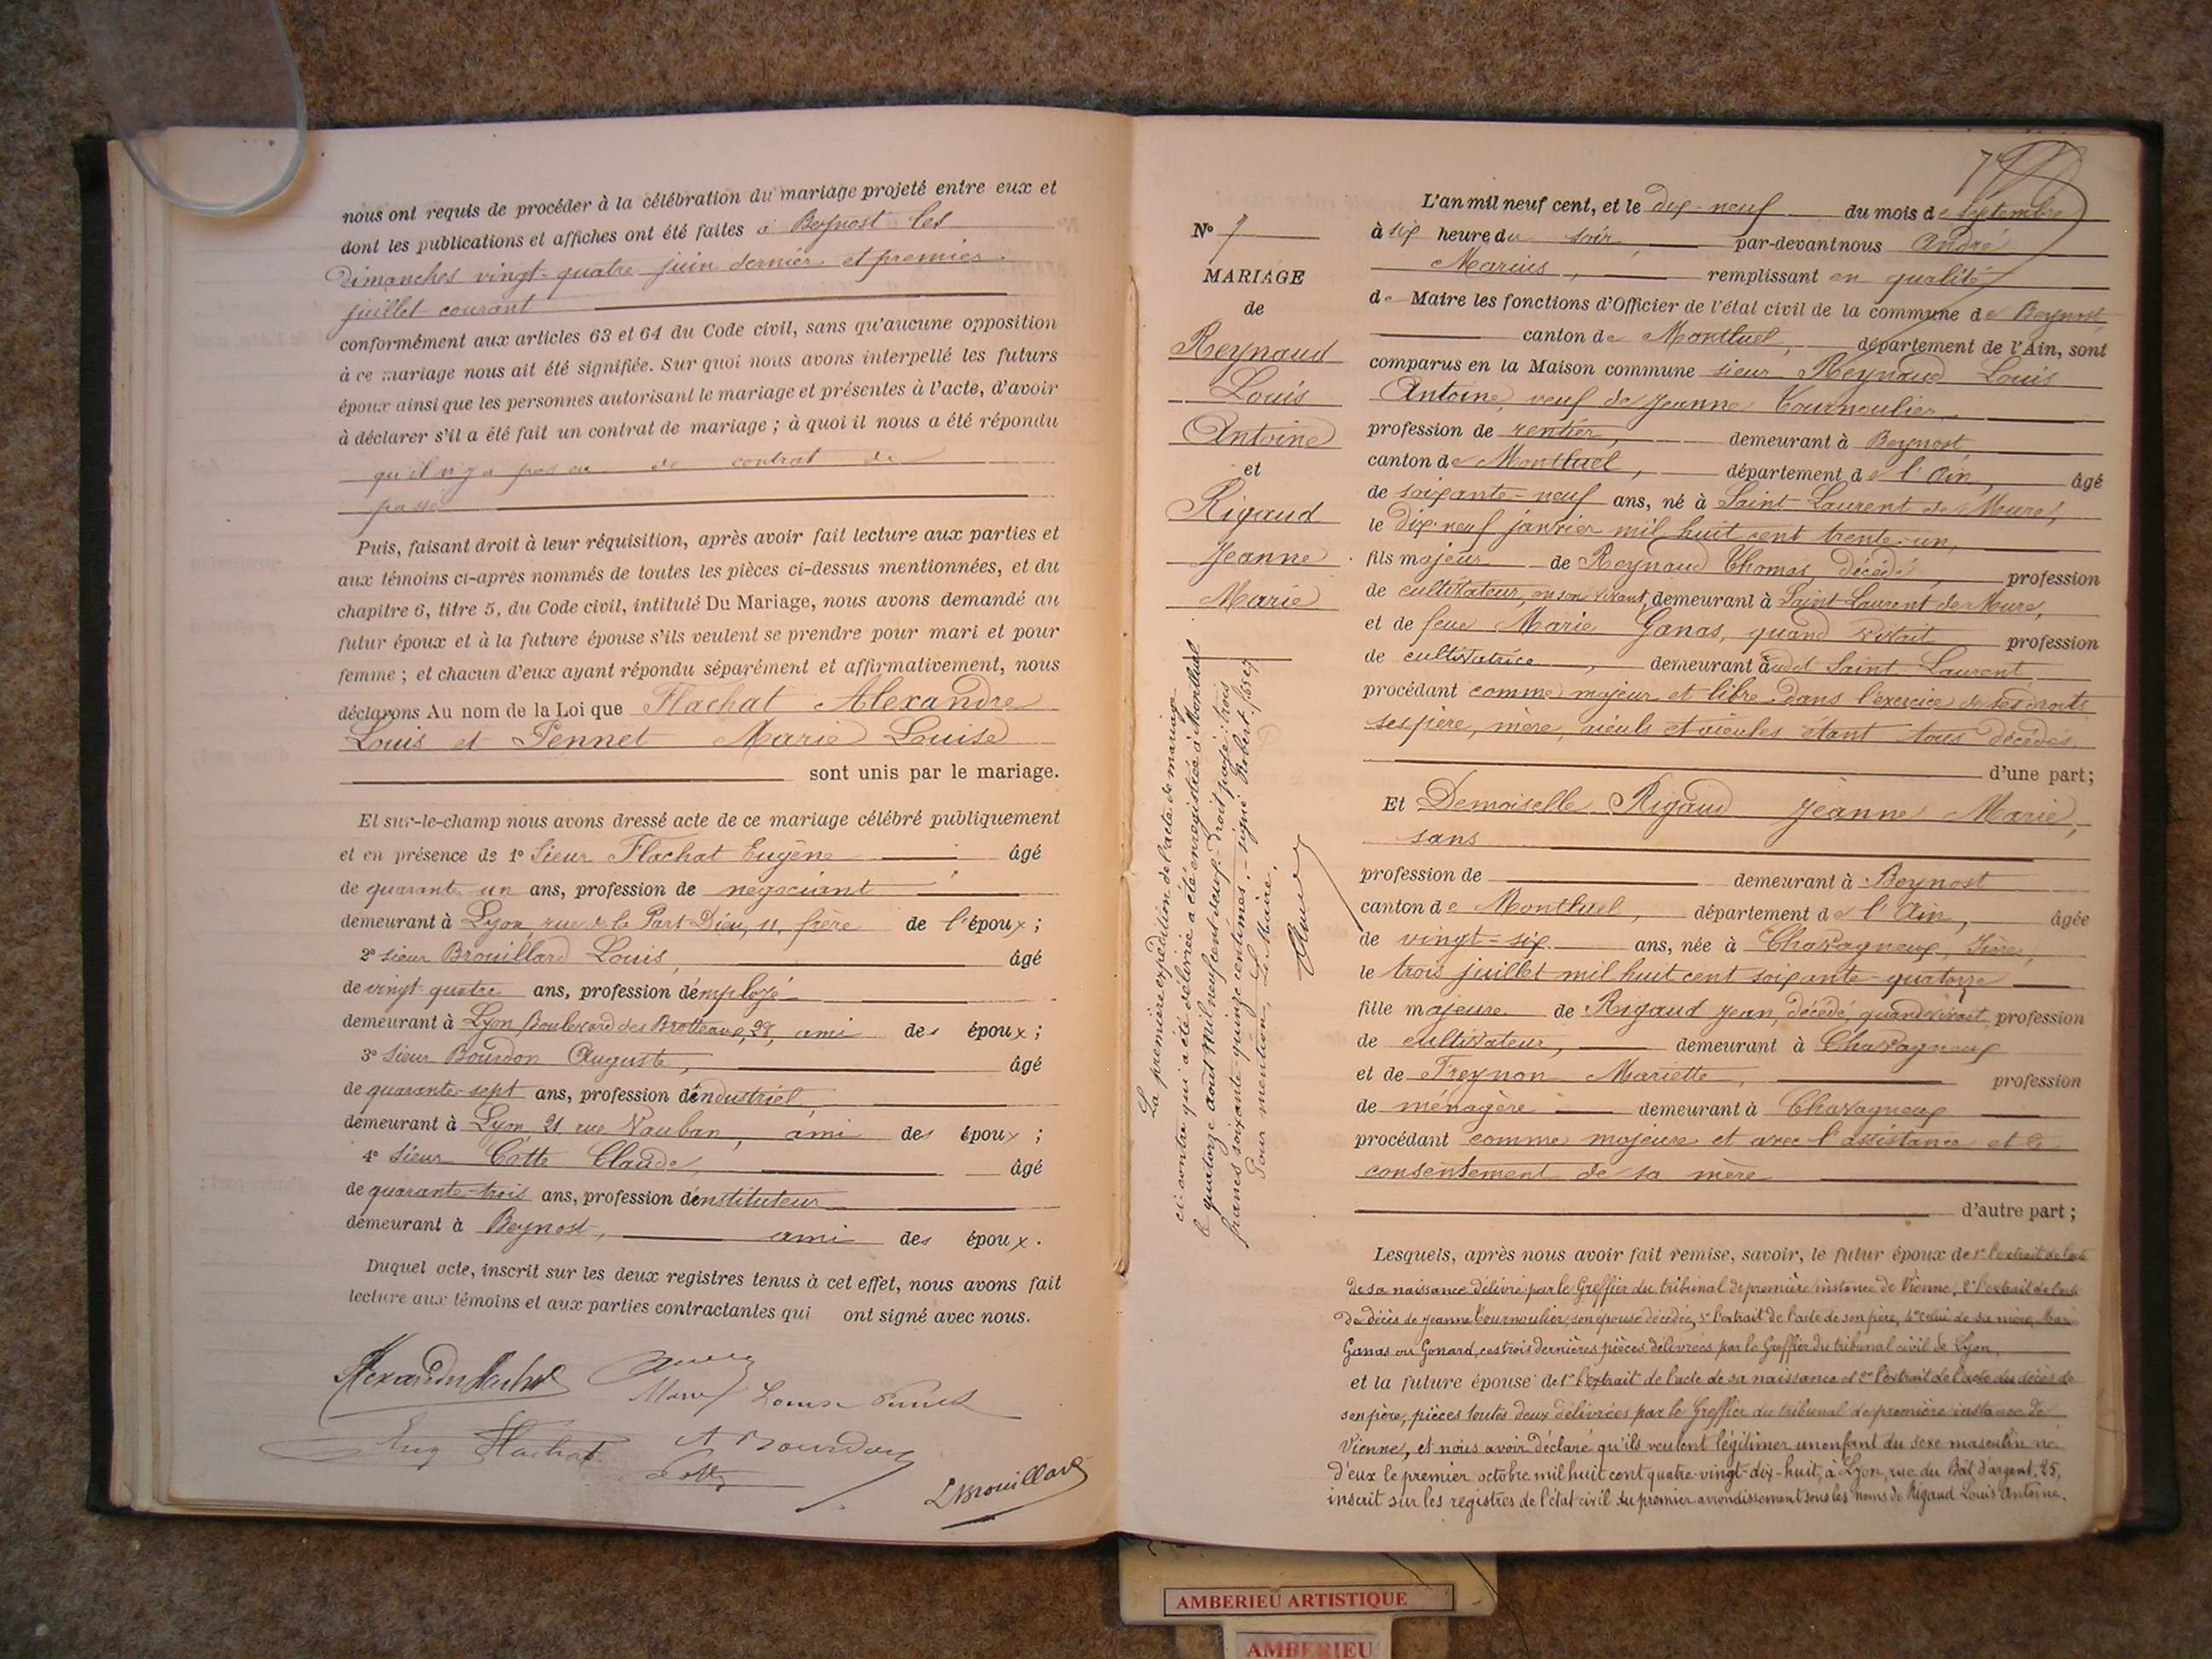 nous ont requis de procéder à la célébration du mariage projeté entre eux et
dont les publications et affiches ont été faites à Beynost les
Dimanches vingt-quatre juin dernier et premier
juillet courant
conformément aux articles 63 et 64 du Code civil, sans qu'aucune opposition
à ce mariage nous ait été signifiée. Sur quoi nous avons interpellé les futurs
époux ainsi que les personnes autorisant le mariage et présentes à l'acte, d'avoir
à déclarer s'il a été fait un contrat de mariage ; à quoi il nous a été répondu
qu'il n'y a pas eu de contrat de
passé
Puis, faisant droit à leur réquisition, après avoir fait lecture aux parties et
aux témoins ci-après nommés de toutes les pièces ci-dessus mentionnées, et du
chapitre 6, titre 5, du Code civil, intitulé Du Mariage, nous avons demandé au
futur époux et à la future épouse s'ils veulent se prendre pour mari et pour
femme ; et chacun d'eux ayant répondu séparément et affirmativement, nous
déclarons Au nom de la Loi que Flachat Alexandre
Louis et Pennet Marie Louise
sont unis par le mariage.
Et sur-le-champ nous avons dressé acte de ce mariage célébré publiquement
et en présence de 1° Sieur Flachat Eugène âgé
de quarante-un ans, profession de négociant
demeurant à Lyon, rue de la Part-Dieu, 11, frère de l'époux ;
2° sieur Brouillard Louis, âgé
de vingt-quatre ans, profession d'employé
demeurant à Lyon, Boulevard des Brotteaux, 28, ami des époux ;
3° Sieur Bourdon Auguste, âgé
de quarante-sept ans, profession d'industriel
demeurant à Lyon, 21 rue Vauban, ami des époux ;
4° Sieur Cotte Claude, âgé
de quarante-trois ans, profession d'instituteur
demeurant à Beynost, ami des époux.
Duquel acte, inscrit sur les deux registres tenus à cet effet, nous avons fait
lecture aux témoins et aux parties contractantes qui ont signé avec nous.
Alexandre Flachat
Marie Louise Pennet
Eug Flachat A Bourdon
Cotte
L Brouillard
7
N° 7
MARIAGE
de
Reynaud
Louis
Antoine
et
Rigaud
Jeanne
Marie
La première expédition de l'acte de mariage
ci-contre qui a été délivrée a été enregistrée à Montluel
le quatorze août mil neuf cent neuf. Droit payé : trois
francs soixante-quinze centimes. - signé Robert
Pour mention, Le Maire,
L'an mil neuf cent, et le dix-neuf du mois de Septembre
à six heure du soir, par-devant nous André
Marius, remplissant en qualité
de Maire les fonctions d'Officier de l'état civil de la commune de Beynost
canton de Montluel, département de l'Ain, sont
comparus en la Maison commune sieur Reynaud Louis
Antoine, veuf de Jeanne Cournoulier,
profession de rentier, demeurant à Beynost,
canton de Montluel, département de l'Ain, âgé
de soixante-neuf ans, né à Saint Laurent de Mure,
le dix-neuf janvier mil huit cent trente-un,
fils majeur de Reynaud Thomas, décédé, profession
de cultivateur, en son vivant, demeurant à Saint Laurent de Mure,
et de feue Marie Ganas, quand vivait profession
de cultivatrice, demeurant audit Saint Laurent
procédant comme majeur et libre dans l'exercice de ses droits
ses père, mère, aïeuls et aïeules étant tous décédés
d'une part;
Et Demoiselle Rigaud Jeanne Marie,
sans
profession de demeurant à Beynost
canton de Montluel, département de l'Ain, âgée
de vingt-six ans, née à Chavagneux, Isère,
le trois juillet mil huit cent soixante-quatorze
fille majeure de Rigaud Jean, décédé, quand vivait, profession
de cultivateur, demeurant à Chavagneux
et de Freynon Mariette, profession
de ménagère demeurant à Chavagneux
procédant comme majeure et avec l'assistance et le
consentement de sa mère
d'autre part ;
Lesquels, après nous avoir fait remise, savoir, le futur époux de 1° l'extrait de l'acte
de sa naissance délivré par le Greffier du tribunal de première instance de Vienne, 2° l'extrait de l'acte
de décès de Jeanne Cournoulier, son épouse décédée, 3° l'extrait de l'acte de son père, 4° celui de sa mère, Marie
Ganas ou Gonard, ces trois dernières pièces délivrées par le Greffier du tribunal civil de Lyon,
et la future épouse de 1° l'extrait de l'acte de sa naissance et 2° l'extrait de l'acte du décès de
son père, pièces toutes deux délivrées par le Greffier du tribunal de première instance de
Vienne, et nous avoir déclaré qu'ils veulent légitimer un enfant du sexe masculin né
d'eux le premier octobre mil huit cent quatre-vingt-dix-huit, à Lyon, rue du Bât d'argent, 25,
inscrit sur les registres de l'état civil du premier arrondissement sous les noms de Rigaud Louis Antoine.
AMBERIEU ARTISTIQUE
AMBERIEU